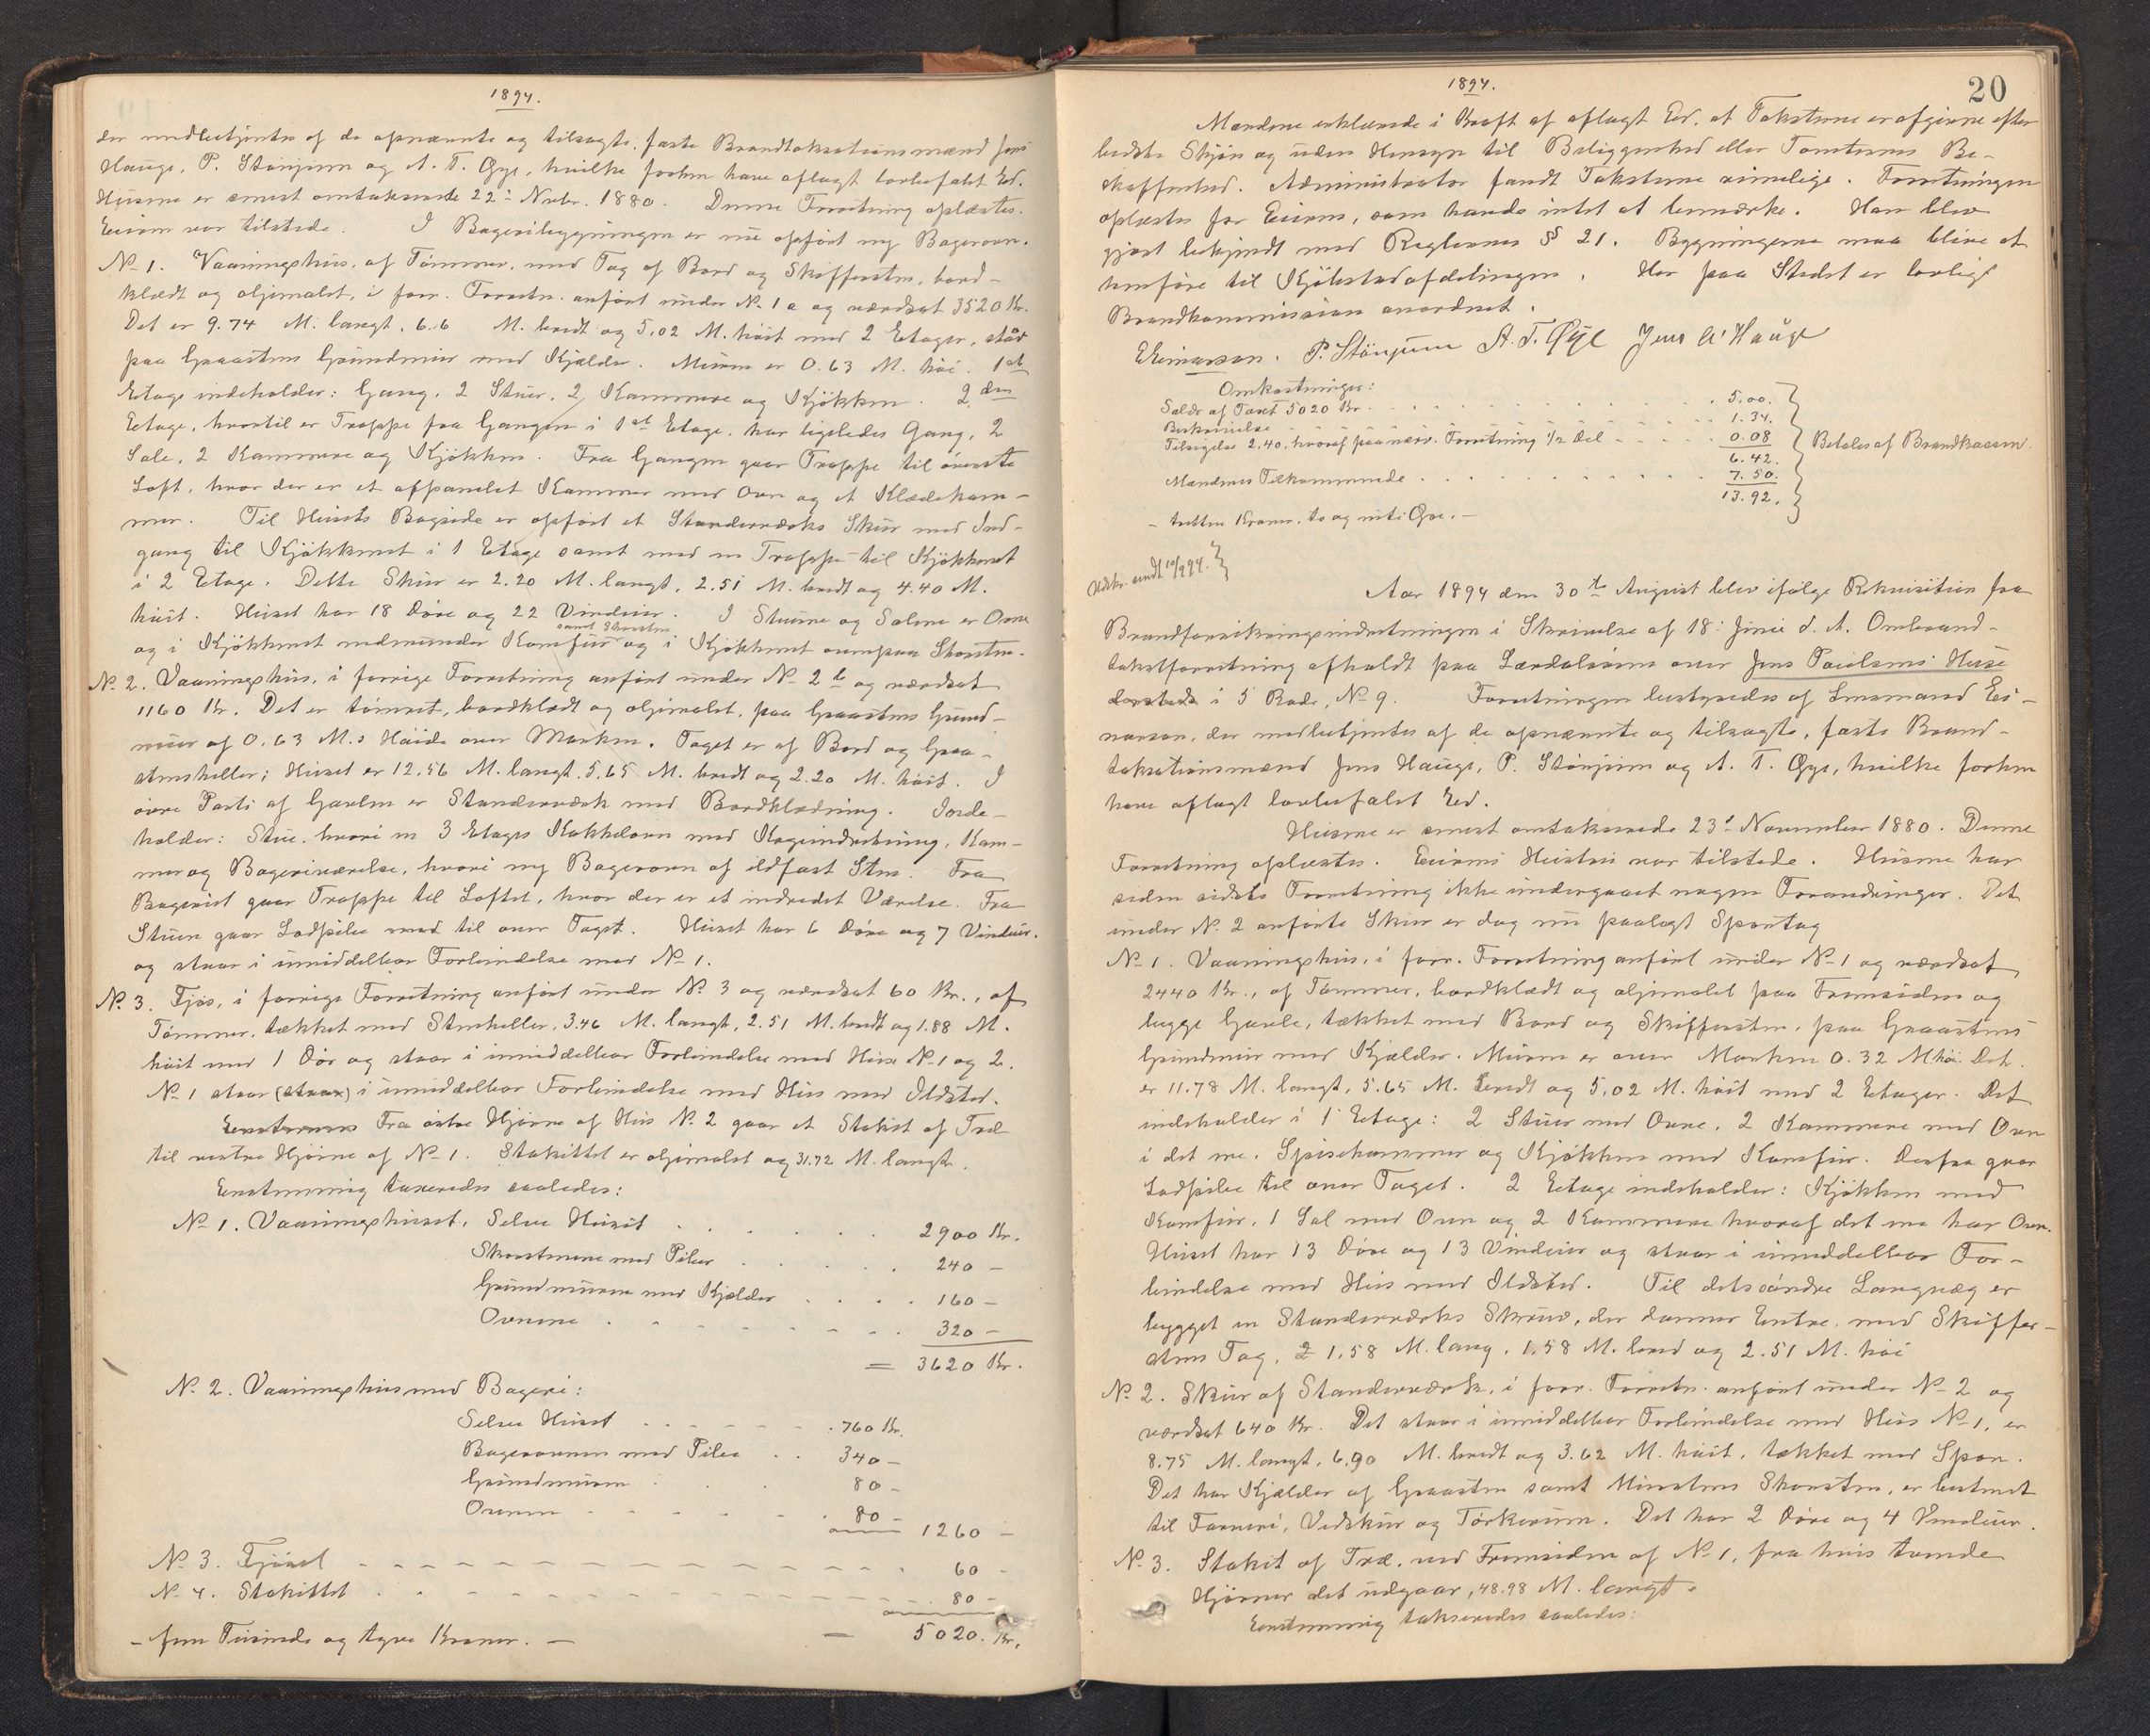 1894.
der medbetjentes af de opnævnte og tilsagte, faste Brandtaksationsmænd Jens
Hauge, P. Stønjum og A. T. Øye, hvilke forhen have aflagt lovbefalet Ed.
Husene er senest omtakserede 22de Novbr. 1880. Denne Forretning oplæstes.
Eieren var tilstede. I Bageribygningen er nu opført ny Bagerovn.
No 1. Vaaningshus, af Tømmer, med Tag af Bord og Skiffersten, bord-
klædt og oljemalet, i forr. Forretn. anført under No 1 a og værdsat 3520 Kr.
Det er 9.74 M. langt, 6.6 M. bredt og 5.02 M. høit med 2 Etager, står
paa Graastens Grundmur med Kjælder. Muren er 0.63 M. høi. 1ste
Etage indeholder: Gang, 2 Stuer, 2 Kammere og Kjøkken. 2den
Etage, hvortil er Trappe fra Gangen i 1ste Etage, har ligeledes Gang, 2
Sale, 2 Kammere og Kjøkken. Fra Gangen gaar Trappe til øverste
Loft, hvor der er et afpanelet Kammer med Ovn og et Klædekam-
mer. Til Husets Bagside er opført et Standerværks Skur med Ind-
gang til Kjøkkenet i 1 Etage samt med en Trappe til Kjøkkenet
i 2 Etage. Dette Skur er 2.20 M. langt, 2.51 M. bredt og 4.40 M.
høit. Huset har 18 Døre og 22 Vinduer. I Stuerne og Salene er Ovne
samt Skorsten
og i Kjøkkenet nedenunder Komfur og i Kjøkkenet ovenpaa Skorsten.
No 2. Vaaningshus, i forrige Forretning anført under No 2 b og værdsat
1160 Kr. Det er tømret, bordklædt og oljemalet, paa Graastens Grund-
mur af 0.63 M.s Høide over Marken. Taget er af Bord og Graa-
stensheller; Huset er 12.56 M. langt, 5.65 M. bredt og 2.20 M. høit. I
øvre Parti af Gavlen er Standerværk med Bordklædning. Inde-
holder: Stue, hvori en 3 Etages Kakkelovn med Kogeindretning, Kam-
mer og Bageriværelse, hvori ny Bagerovn af ildfast Sten. Fra
Bageriet gaar Trappe til Loftet, hvor der er et indredet Værelse. Fra
Stuen gaar Lodpibe med til over Taget. Huset har 6 Døre og 7 Vinduer.
og staar i umiddelbar Forbindelse med No 1.
No 3. Fjøs, i forrige Forretning anført under No 3 og værdsat 60 Kr., af
Tømmer, tækket med Stenheller, 3.46 M. langt, 2.51 M. bredt og 1.88 M.
høit med 1 Dør og staar i umiddelbar Forbindelse med Huse No 1 og 2.
No 1 staar (staar) i umiddelbar Forbindelse med Hus med Ildsted.
Fra østre Hjørne af Hus No 2 gaar et Stakit af Træ
til vestre Hjørne af No 1. Stakittet er oljemalet og 31.72 M. langt.
Eenstemmig taxeredes saaledes:
No 1. Vaaningshuset, Selve Huset . . . . . 2900 Kr.
Skorstenene med Piber . . . . . 240 –
Grundmuren med Kjælder . . . . 160 –
Ovnene . . . . . . . 320 –
= 3620 Kr.
No 2. Vaaningshus med Bageri:
Selve Huset . . . . . . 760 Kr.
Bagerovnen med Pibe . . 340 –
Grundmuren . . . 80 –
Ovnen . . . . . . 80 – 1260 –
No 3. Fjøset – – – – – – – – – – 60 –
No 4. Stakittet . . – – – – – – – – 80 –
– fem Tusinde og tyve Kroner. – = 5020. Kr.
1894.
20
Mændene erklærede i Kraft af aflagt Ed, at Taksterne er afgivne efter
bedste Skjøn og uden Hensyn til Beliggenhed eller Tomternes Be-
skaffenhed. Administrator fandt Taksterne rimelige. Forretningen
oplæstes for Eieren, som havde intet at bemærke. Han blev
gjort bekjendt med Reglernes § 21. Bygningerne maa blive at
henføre til Kjøbstadafdelingen. Her paa Stedet er lovligt
Brandkommission anordnet.
E. Einarsen. P. Stönjum A. T. Øye Jens A. Hauge
Omkostninger:
Salær af Taxt 5020 Kr. . . . . . . . . 5.00.
Beskrivelse . . . . . . . 1.34.
Tilsigelse 2.40, hvoraf paa nærv. Forretning 1/2 Del . . . . 0.08 Betales af Brandkassen.
6.42.
Mændenes Tilkommende . . . . . . . . 7.50.
13.92.
– tretten Kroner, to og niti Øre. –
Udskr. sendt 10/9 94.
Aar 1894 den 30te August blev ifølge Rekvisition fra
Brandforsikringsindretningen i Skrivelse af 18. Juni d. A. Ombrand-
takstforretning afholdt paa Lærdalsøren over Jens Paulsens Huse
dersteds i 5 Rode, No 9. Forretningen bestyredes af Lensmand Ei-
narsen, der medbetjentes af de opnævnte og tilsagte, faste Brand-
taksationsmænd Jens Hauge, P. Stønjum og A. T. Øye, hvilke forhen
have aflagt lovbefalet Ed.
Husene er senest omtakserede 23de November 1880. Denne
Forretning oplæstes. Eierens Hustru var tilstede. Husene har
siden sidste Forretning ikke undergaaet nogen Forandringer. Det
under No 2 anførte Skur er dog nu paalagt Spontag
No 1. Vaaningshus, i forr. Forretning anført under No 1 og værdsat
2440 Kr., af Tømmer, bordklædt og oljemalet paa Fremsiden og
begge Gavle, tækket med Bord og Skiffersten, paa Graastens
Grundmur med Kjælder. Muren er over Marken 0.32 M høi. Det
er 11.78 M. langt, 5.65 M. bredt og 5,02 M. høit med 2 Etager. Det
indeholder i 1 Etage: 2 Stuer med Ovne, 2 Kammere med Ovn
i det ene, Spisekammer og Kjøkken med Komfur. Derfra gaar
Lodpibe til over Taget. 2 Etage indeholder: Kjøkken med
Komfur, 1 Sal med Ovn og 2 Kammere hvoraf det ene har Ovn.
Huset har 13 Døre og 13 Vinduer og staar i umiddelbar For-
bindelse med Hus med Ildsted. Til dets søndre Langvæg er
bygget en Standerværks Skruv, der danner Entre, med Skiffer-
stens Tag, 1.58 M. lang, 1.58 M. bred og 2.51 M. høi
No 2. Skur af Standerværk, i forr. Forretn. anført under No 2 og
værdsat 640 Kr. Det staar i umiddelbar Forbindelse med Hus No 1, er
8.75 M. langt, 6.90 M. bredt og 3.62 M. høit, tækket med Spon.
Det har Kjælder af Graasten samt Murstens Skorsten, er bestemt
til Farveri, Vedskur og Tørkerum. Det har 2 Døre og 4 Vinduer.
No 3. Stakit af Træ, ved Fremsiden af No 1, fra hvis tvende
Hjørner det udgaar, 48.98 M. langt.
Eenstemmig takseredes saaledes: